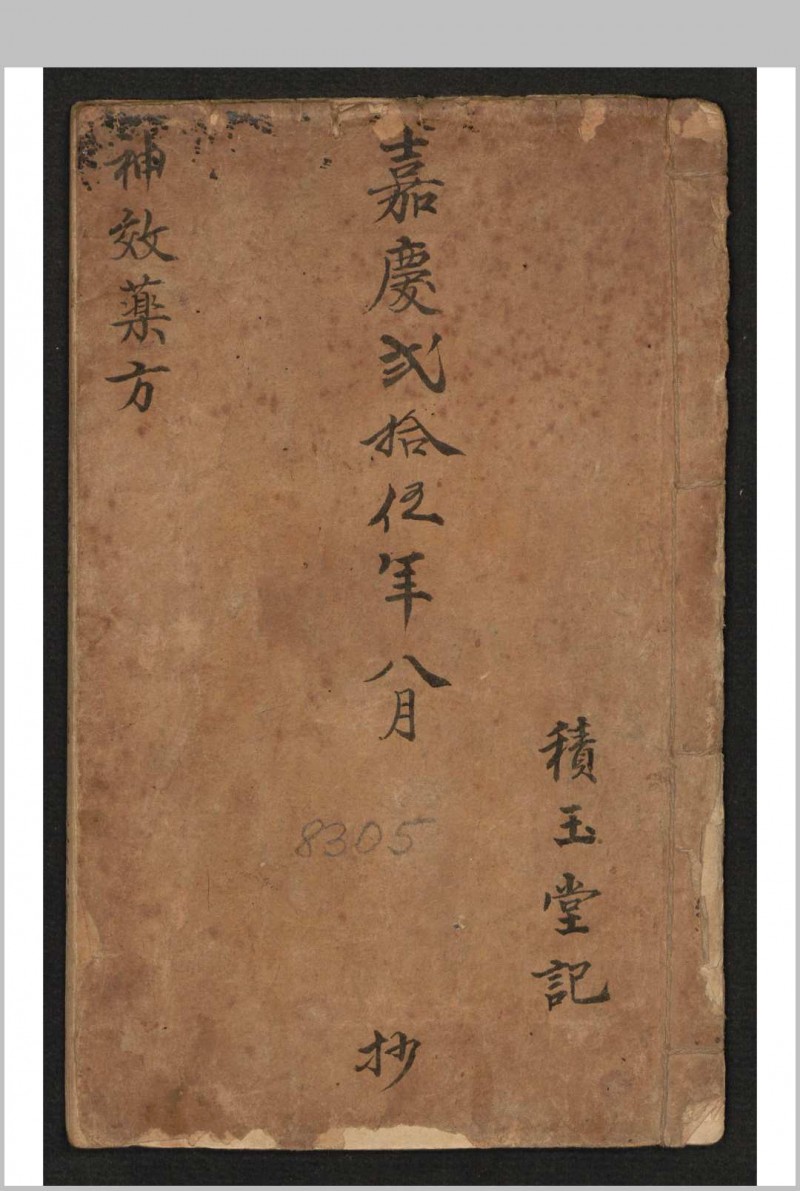 積玉堂記
嘉慶弍拾伍年八月
抄
神效藥方
8305